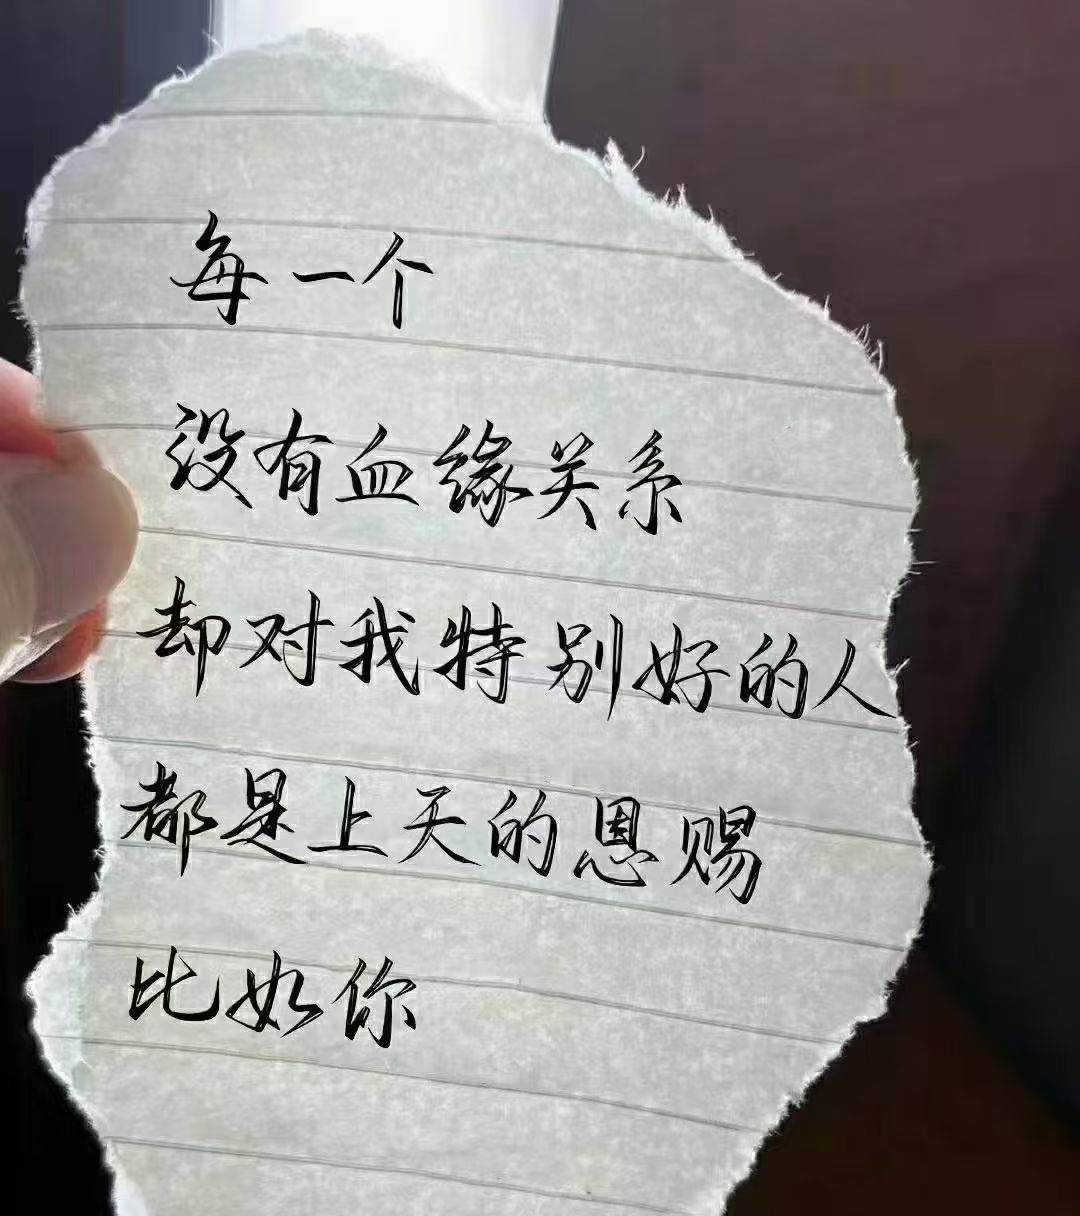 每一个
没有血缘关系
却对我特别好的人
都是上天的恩赐
比如你